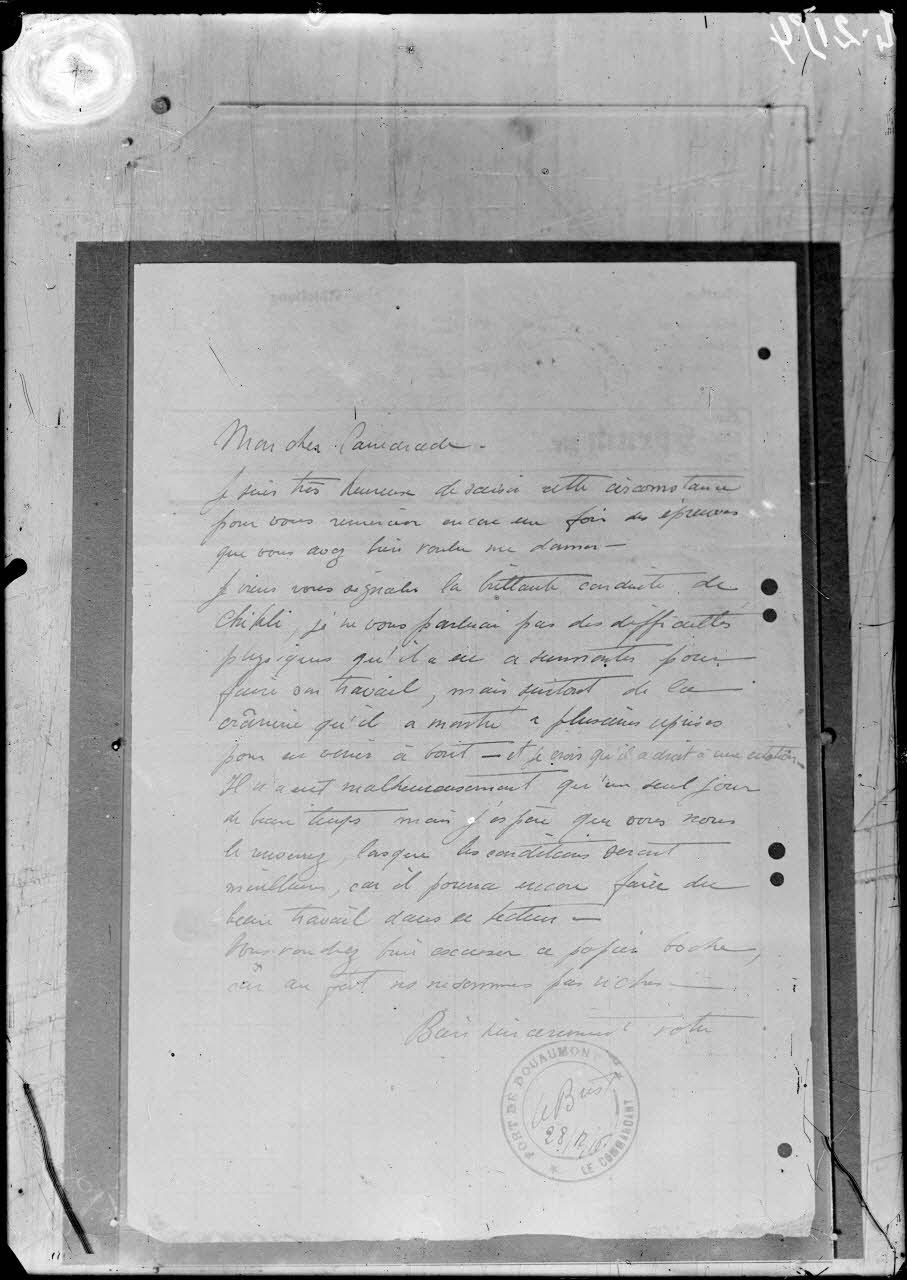 Mon cher Camarade.
Je suis très heureux de saisir cette circonstance
pour vous remercier encore une fois des épreuves
que vous avez bien voulu me donner —
Je viens vous signaler la brillante conduite de
Chikli, je ne vous parlerai pas des difficultés
physiques qu'il a eu a surmonter pour
faire son travail, mais surtout de la
crânerie qu'il a montré à plusieurs reprises
pour en venir à bout — et je crois qu'il a droit à une citation —
Il n'a eut malheureusement qu'un seul jour
de beau temps mais j'espère que vous nous
le renverrez lorsque les conditions seront
meilleures, car il pourra encore faire du
beau travail dans ce secteur —
Vous voudrez bien excuser ce papier boche,
car au fort ns ne sommes pas riches —
Bien sincèrement votre
FORT DE DOUAUMONT
LE COMMANDANT
28/12/16